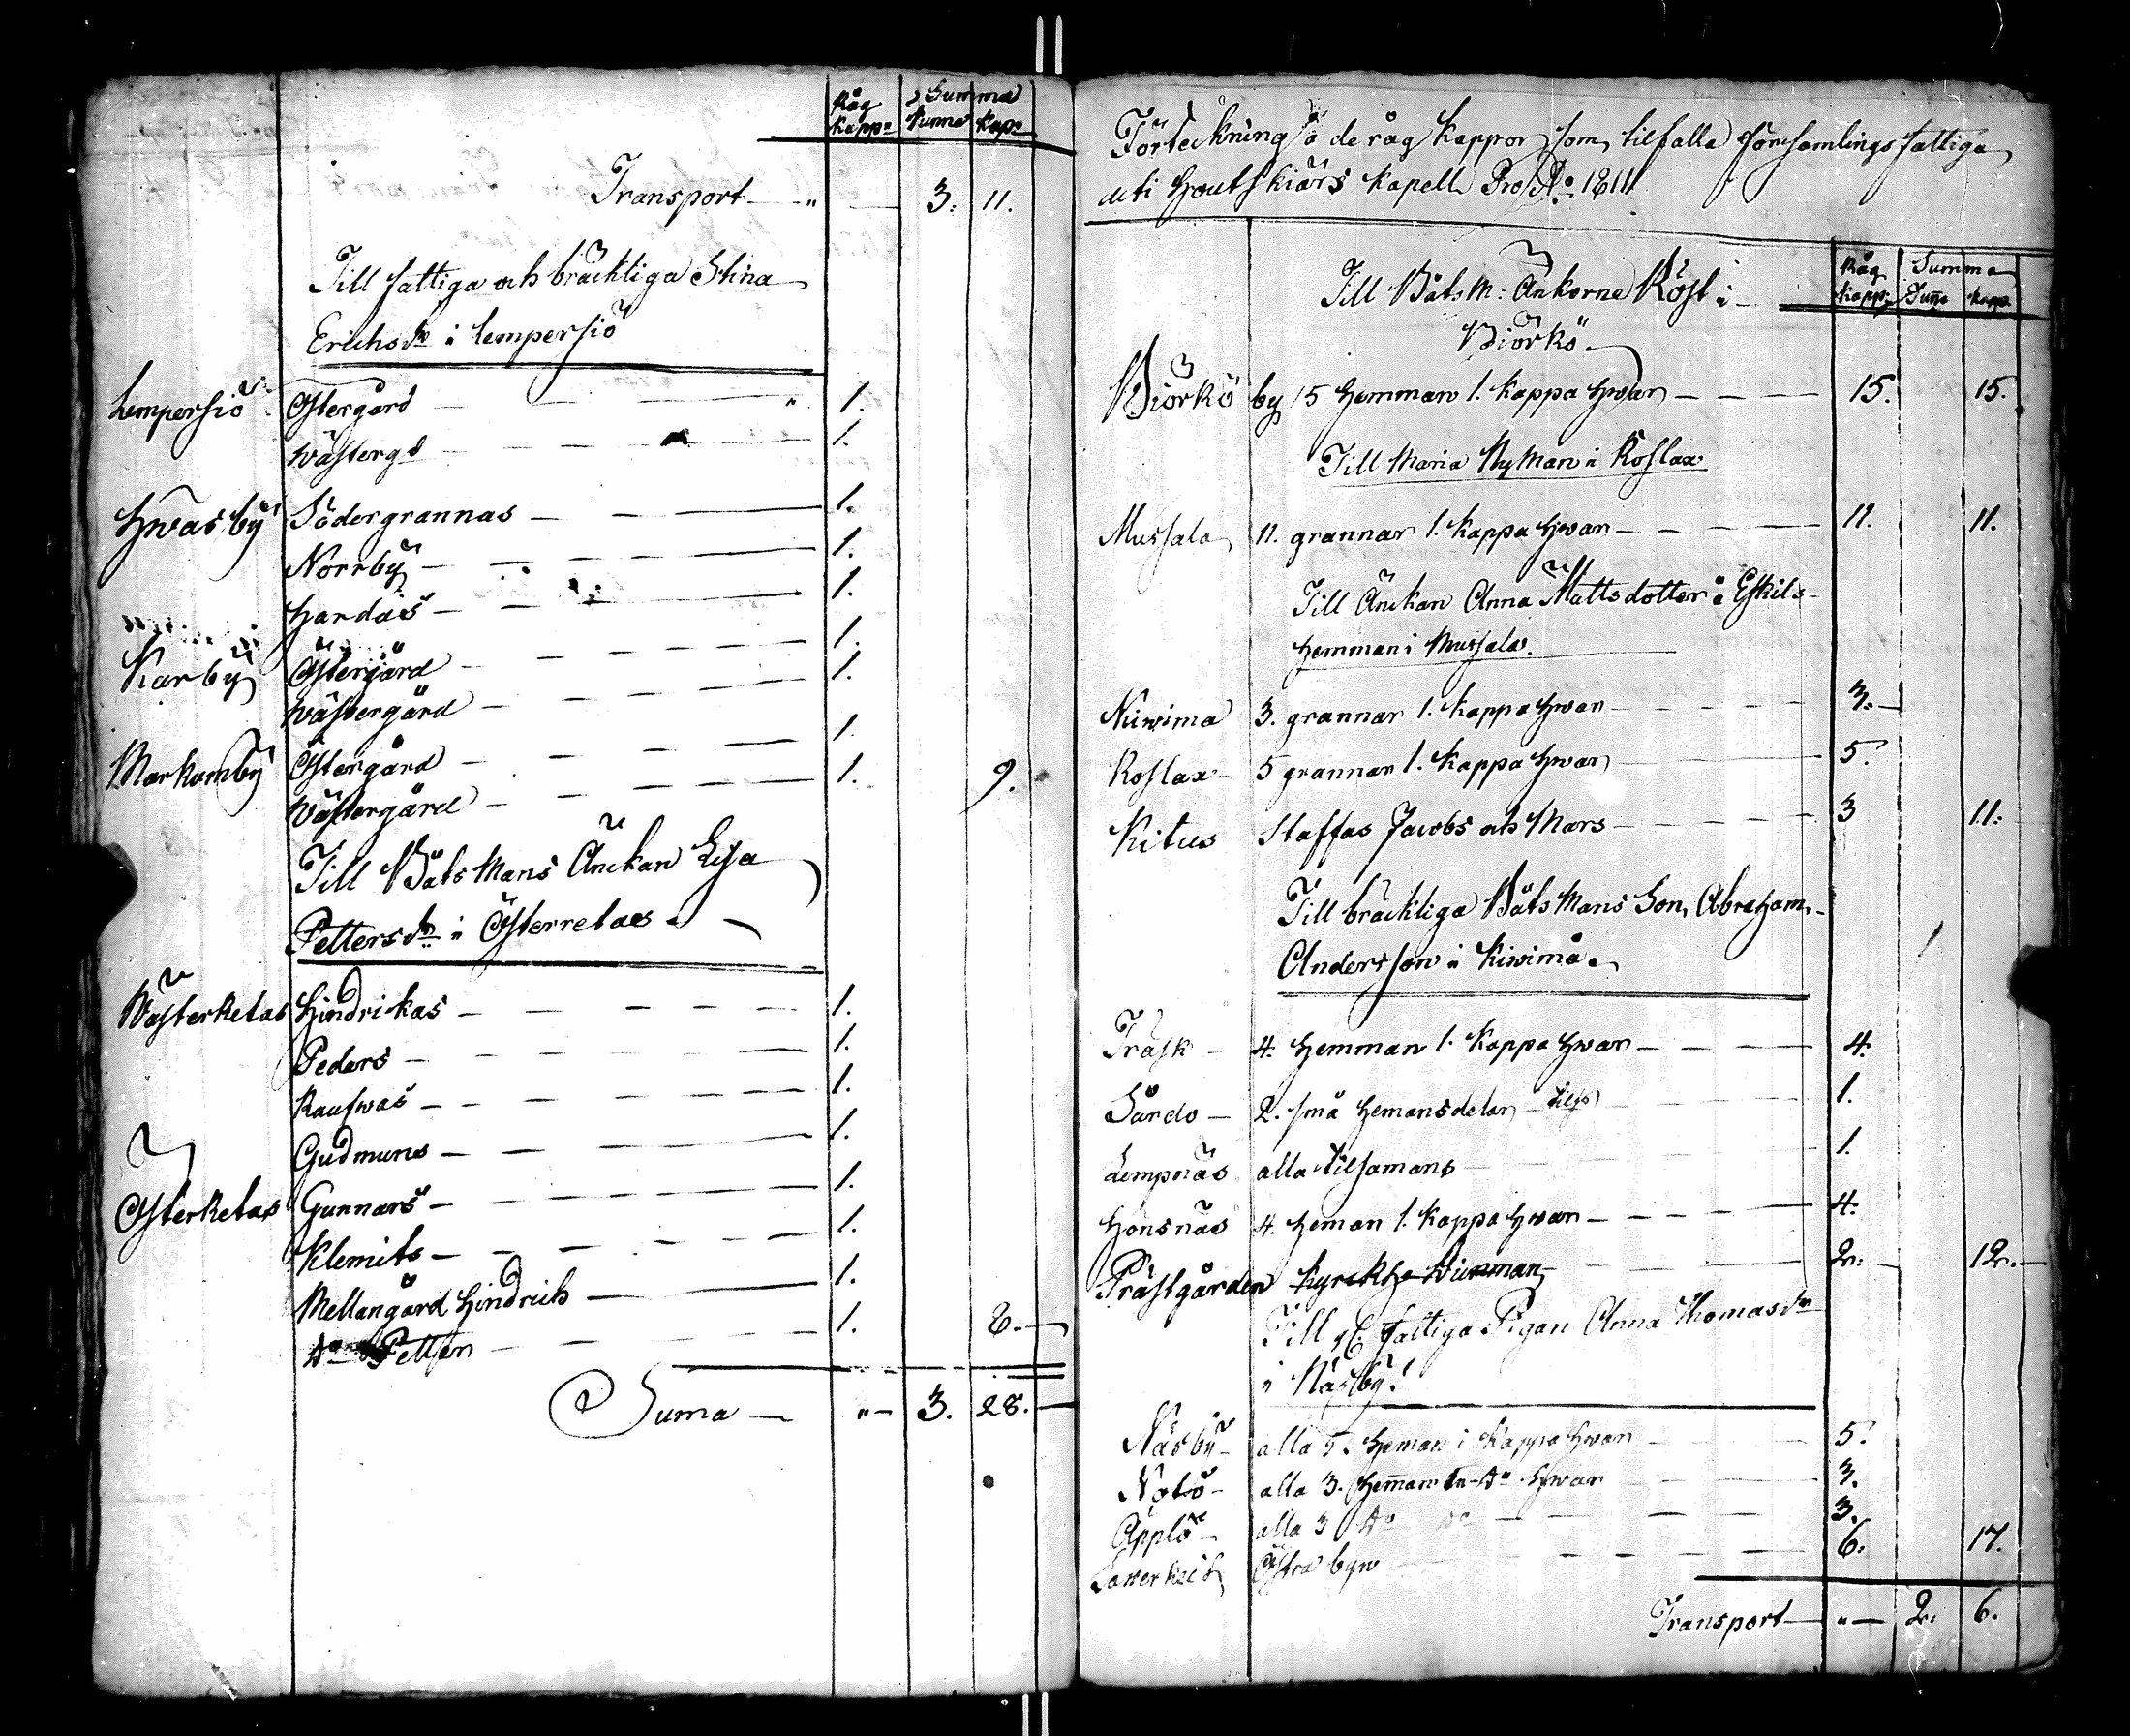 Råg Summa
kapp: Tunna kap:
Transport " 3. 11.
Till fattiga och bräckliga Stina
Erichsdr i Lempersiö
Lempersiö Östergård " 1.
Wästergd 1.
Hwasby Södergrannas 1.
Norrby 1.
Hardas 1.
Karby Östergård 1.
Wästergård 1.
Markomby Östergård 1.
Wästergård 1. 9.
Till Båtsmans Änckan Lisa
Pettersdr i Österretas
Wästerketas Hindrikas 1.
Peders 1.
Raufwas 1.
Gudmuns 1.
Österketas Gunnars 1.
Klemits 1.
Mellangård Hindrich 1.
Do Petter 1. 8.
Suma " 3. 28.
Förteckning å de råg kappor som tilfalla församlings fattiga
uti Houtskiärs Kapell Pro Ao 1811
Råg Summa
kapp: Tune kapp.
Till Båtsm: Änkorne Röst i
Biörkö
Biörkö by 15 Hemman 1. kappa hwar 15. 15.
Till Maria Nyman i Roslax
Mussala 11. grannar 1. kappa hwar 11. 11.
Till Änckan Anna Mattsdotter å Eskils
hemman i Mussala.
Kiwima 3. grannar 1. kappa hwar 3.
Roslax 5 grannar 1. kappa hwar 5.
Kitus Staffas Jacobs och Mars 3 11.
Till bräckliga Båtsmans Son Abraham
Andersson i Kiwima
Träsk 4. Hemman 1. kappa hwar 4.
Sårdo 2. små Hemansdelar tils 1.
Lempnäs alla tilsamans 1.
Hönsnäs 4. Heman 1. kappa hwar 4.
Prästgården 2. 12.
Till gl. fattiga Pigan Anna Thomasdr
i Näsby.
Näsby alla 5. Heman 1 kappa hwar 5.
Nötö alla 3. Heman En do hwar 3.
Äpplö alla 3 do do 3.
Östra byn 6. 17.
Transport " 2. 6.